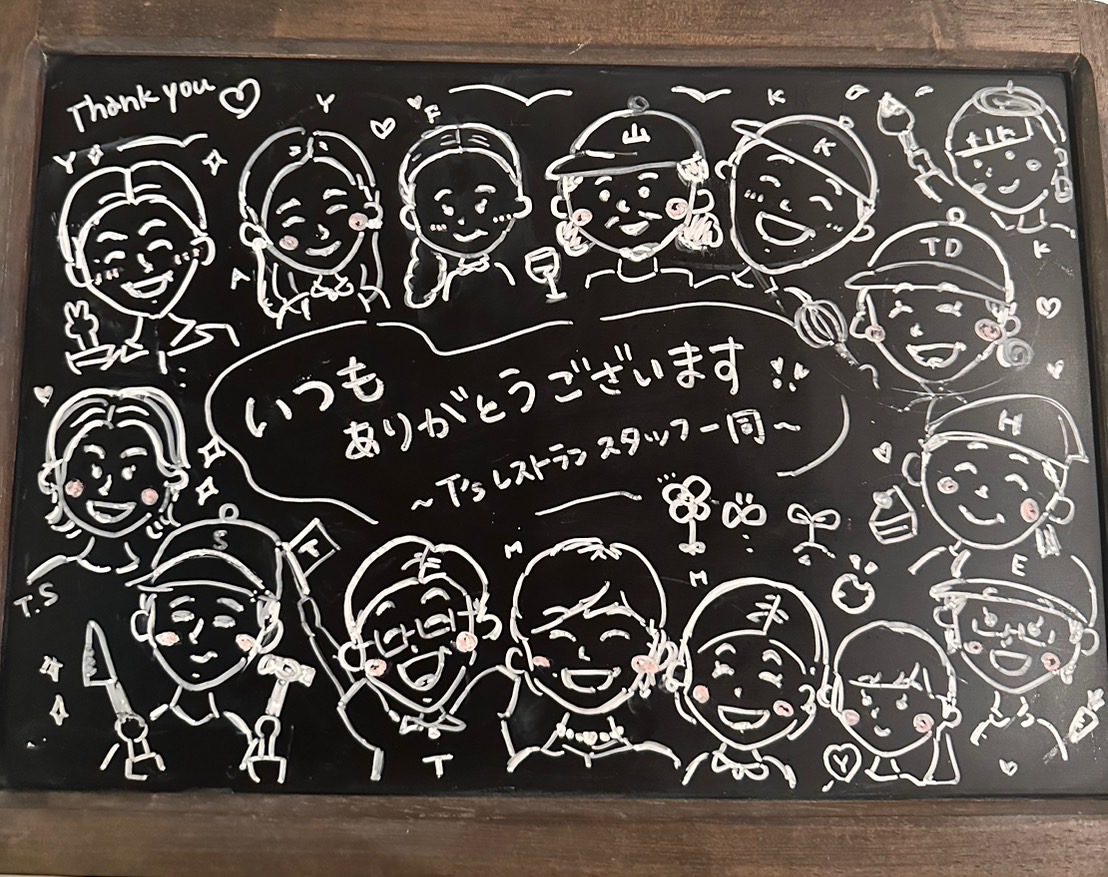 Thank you
Y
Y
F
K
山
K
Y
A
TD
K
いつも
ありがとうございます!!
~T'sレストランスタッフ一同~
H
T.S
S
T
M
M
E
T
Y